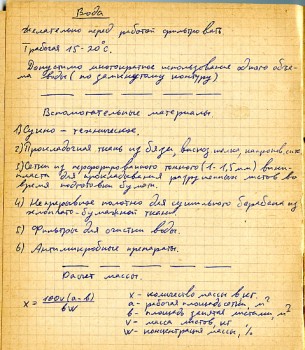 Вода
Желательно перед работой фильтровать
Т рабочая 15-20°С.
Допустимо многократное использование одного объе-
ма воды (по замкнутому контуру)
Вспомогательные материалы.
1) Сукно - техническое.
2) Прокладочная ткань из бязи,
3) Сетки из перфорированного тонкого (1-1,5мм) вини-
пласта для прокладывания разрушенных листов во
время подготовки бумаги.
4) Непрерывное полотно для сушильного барабана из
хлопчато-бумажной ткани.
5) Фильтры для очистки воды.
6) Антимикробные препараты.
Расчет массы.
x = 100v(a-b) / bw
x - количество массы в кг.
a - рабочая площадь сетки м²
b - площадь занятая листами м²
v - масса листов, кг
w - концентрация массы, %